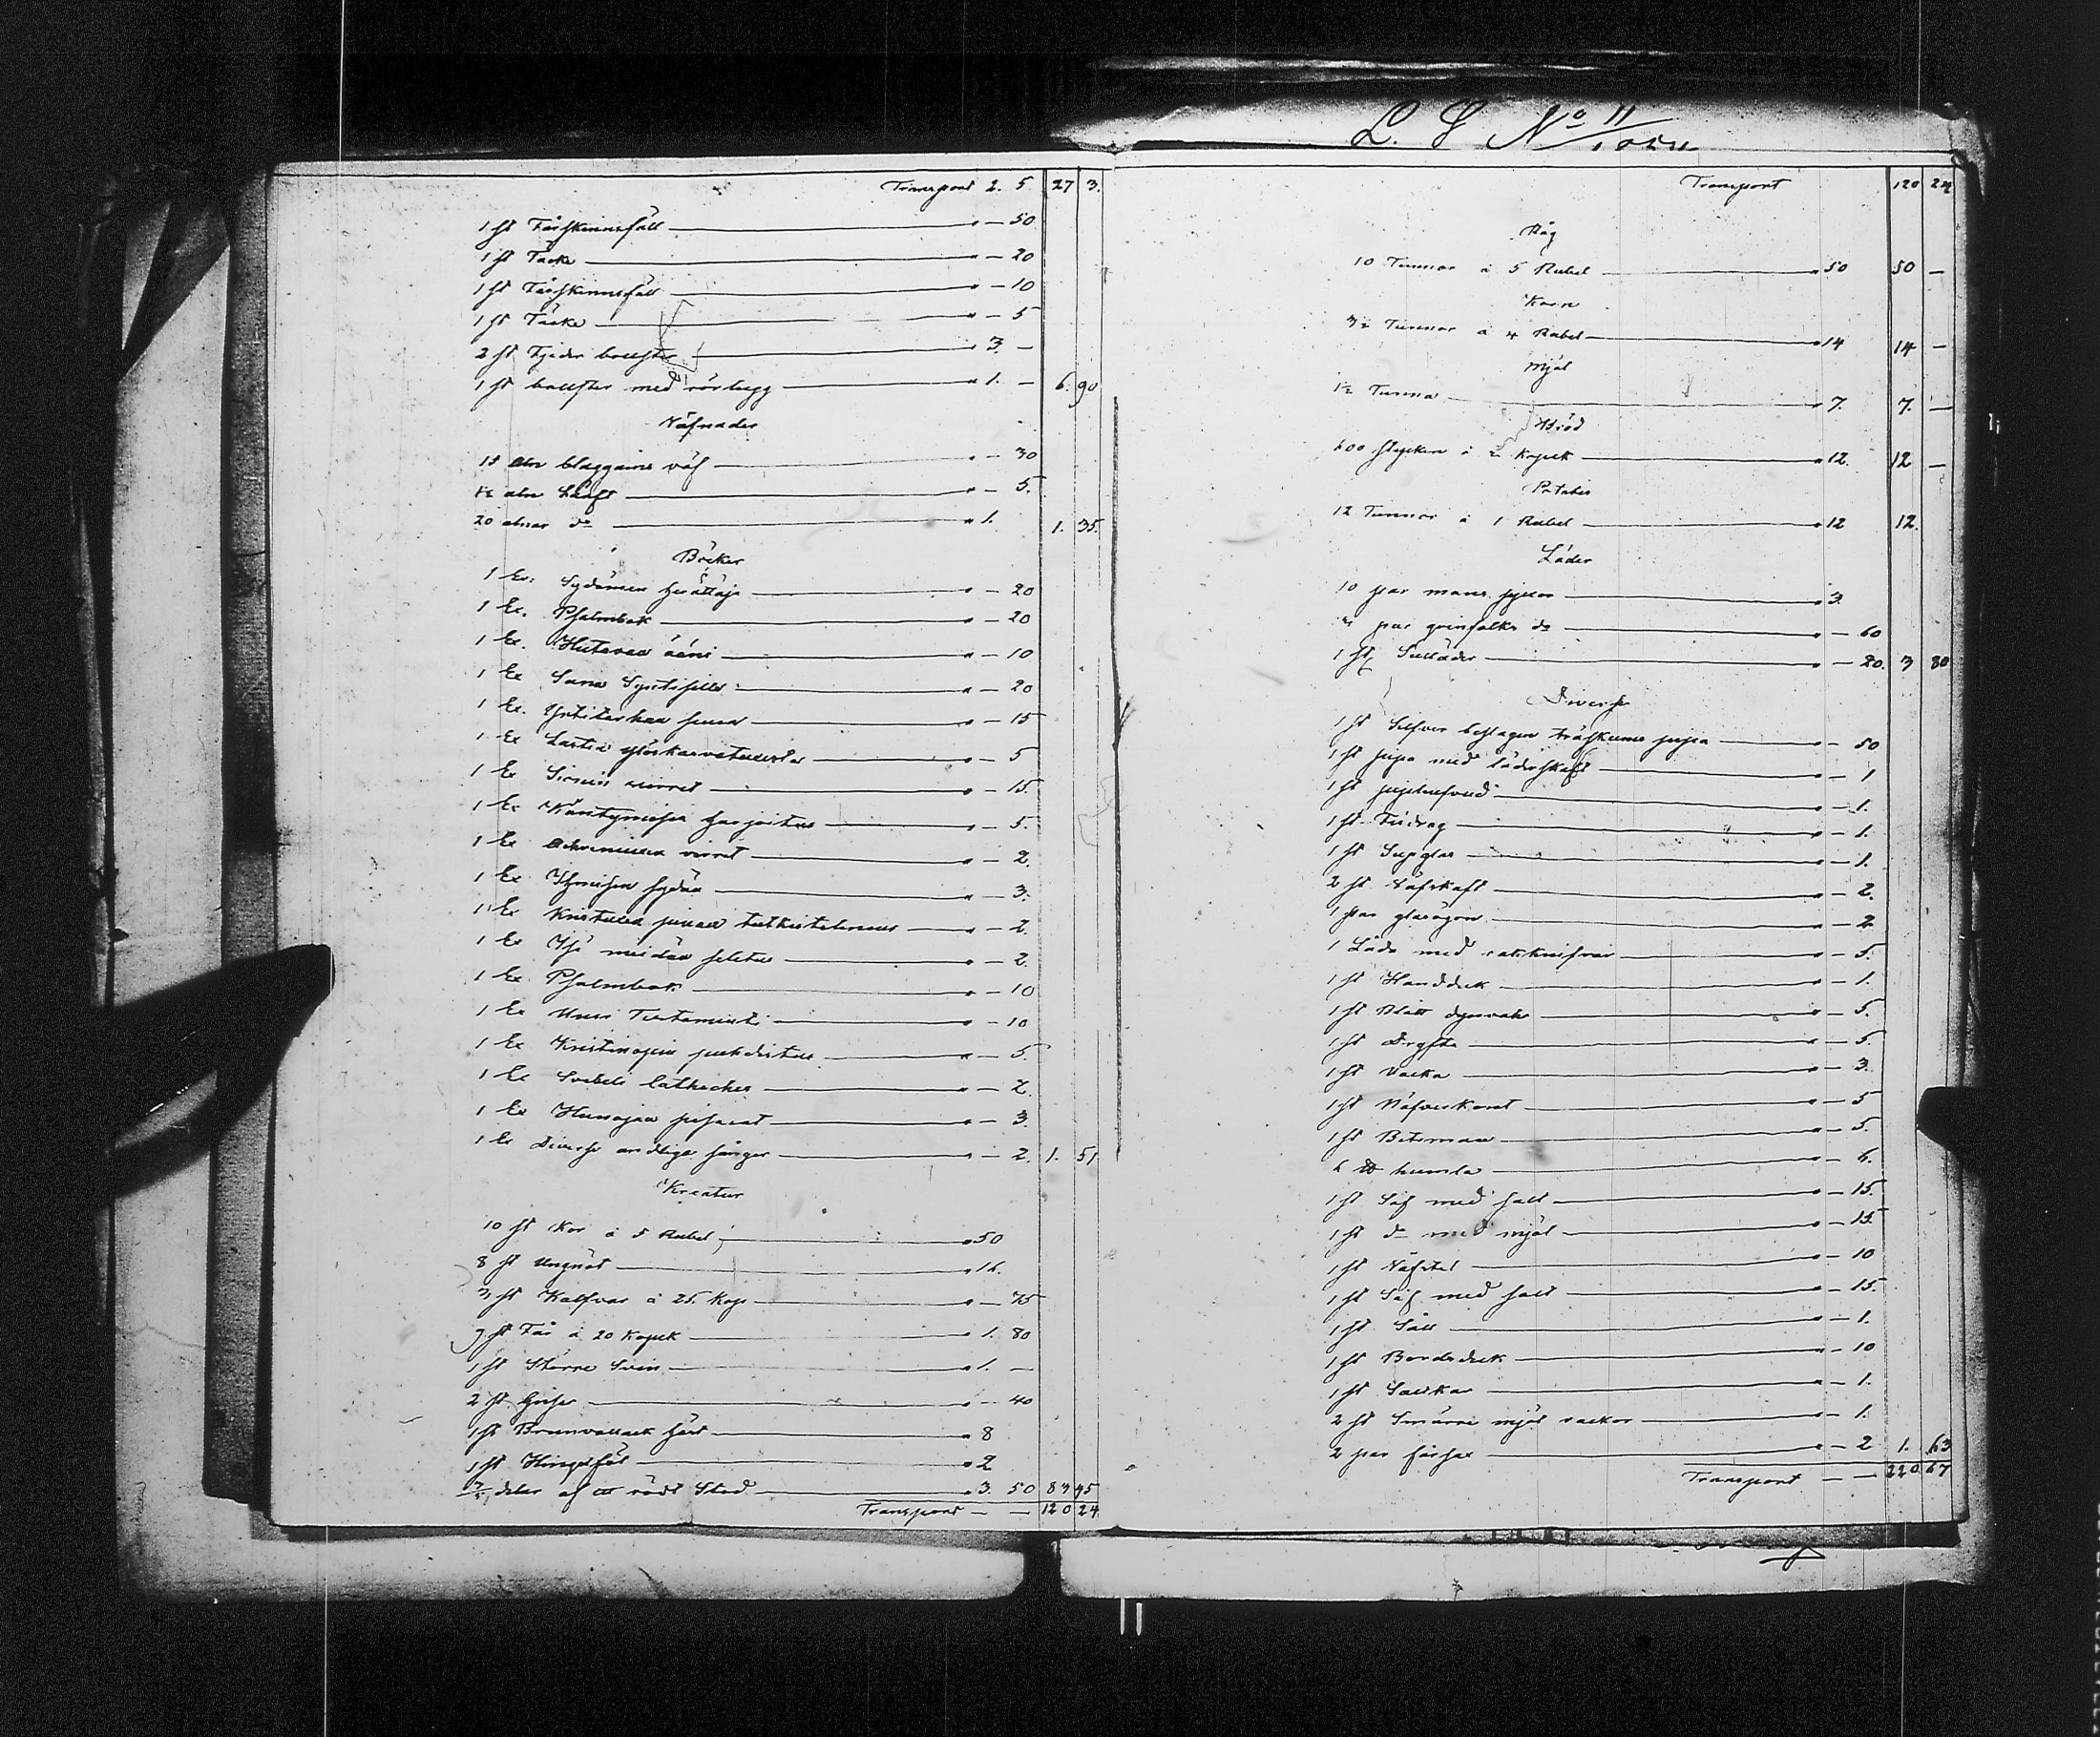 L. S No 11
Transport 2. 5 27 3.
1 st Fårskinnsfäll — " — 50
1 st Täcke — " — 20
1 st Fårskinnsfäll — " — 10
1 st Täcke — " — 5
2 st Fjeder bolster — " 3. —
1 st bolster med rörhugg — " 1. — 6. 90
Väfnader
15 aln blaggarns väf — " — 30
1/2 aln Läuft — " — 5.
20 alnar do — " 1. 1. 35.
Böcker
1 Ex. Sydämen herättäjä — " — 20
1 Ex. Psalmbok — " — 20
1 Ex. Hutavan ääni — " — 10
1 Ex Sana Syntisille — " — 20
1 Ex. Yrtitarhan — " — 15
1 Ex Lasten — " — 5
1 Ex Sionin virret — " — 15.
1 Ex Kääntymisen harjoitus — " — 5.
1 Ex virret — " — 2.
1 Ex Ihmisen sydän — " — 3.
1 Ex Kristuksen pinan tutkisteleminen — " — 2.
1 Ex Isä meidän selitus — " — 2.
1 Ex Psalmbok — " — 10
1 Ex Uusi Testamenti — " — 10
1 Ex Kristinopin puhdistus — " — 5.
1 Ex Svebeli Cathecher — " — 2.
1 Ex Hunajan pisarat — " — 3.
1 Ex Diverse andliga sånger — " — 2. 1. 51
Kreatur
10 st Kor à 5 Rubel — " 50
8 st Ungnöt — " 16.
3 st Kalfvar à 25. Kop — " — 75
9 st Får à 20 Kopek — " 1. 80
1 st Större Svin — " 1. —
2 st Grisar — " — 40
1 st Brunvallack häst — " 8
1 st Hingstföl — " 2
delar af ett rödt Stod — " 3. 50 83 45
Transport — — 120 24
Transport 120 24
Råg
10 Tunnor à 5 Rubel — " 50 50 —
Korn
3½ Tunnor à 4 Rubel — " 14 14 —
Mjöl
1½ Tunna — " 7. 7. —
Bröd
600 stycken à 2 Kopek — " 12. 12 —
Potatis
12 Tunnor à 1 Rubel — " 12 12.
Läder
10 par mans — " 3.
par qvinfolks do — " — 60
1 st Sulläder — " — 20. 3 80
Diverse
1 st Silfver beslagen pipa — " — 50
1 st pipa med läderskaft — " — 1
1 st piphufvud — " — 1.
1 st Fodrag — " — 1.
1 st Supglas — " — 1.
2 st Väfskaft — " — 2.
1 par glasögon — " — 2
1 Låda med rakknifvar — " — 5.
1 st Handduk — " — 1.
1 st Blått dynvar — " — 5.
1 st Drysta — " — 5.
1 st Vacka — " — 3.
1 st Näfverkont — " — 5
1 st Betsman — " — 5.
6 ℔ humla — " — 6.
1 st Säf med salt — " — 15.
1 st do med mjöl — " — 15.
1 st Väfstol — " — 10
1 st Säf med salt — " — 15.
1 st Såll — " — 1.
1 st Bordsduk — " — 10
1 st Saltkar — " — 1.
2 st Smärre mjöl säckar — " — 1.
2 par fårsax — " — 2 1. 63
Transport — — 220 67